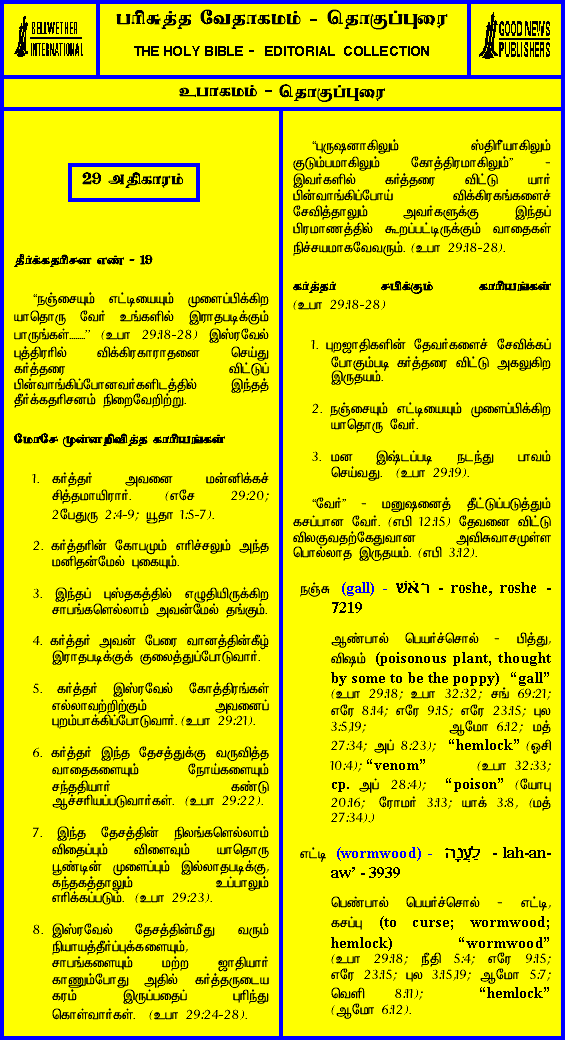 BELLWETHER
INTERNATIONAL
பரிசுத்த வேதாகமம் - தொகுப்புரை
THE HOLY BIBLE - EDITORIAL COLLECTION
GOOD NEWS
PUBLISHERS
உபாகமம் - தொகுப்புரை
29 அதிகாரம்
தீர்க்கதரிசன எண் - 19
“நஞ்சையும் எட்டியையும் முளைப்பிக்கிற
யாதொரு வேர் உங்களில் இராதபடிக்கும்
பாருங்கள்.......” (உபா 29:18-28) இஸ்ரவேல்
புத்திரரில் விக்கிரகாராதனை செய்து
கர்த்தரை விட்டுப்
பின்வாங்கிப்போனவர்களிடத்தில் இந்தத்
தீர்க்கதரிசனம் நிறைவேறிற்று.
மோசே முன்னறிவித்த காரியங்கள்
1. கர்த்தர் அவனை மன்னிக்கச்
சித்தமாயிரார். (எசே 29:20;
2பேதுரு 2:4-9; யூதா 1:5-7).
2. கர்த்தரின் கோபமும் எரிச்சலும் அந்த
மனிதன்மேல் புகையும்.
3. இந்தப் புஸ்தகத்தில் எழுதியிருக்கிற
சாபங்களெல்லாம் அவன்மேல் தங்கும்.
4. கர்த்தர் அவன் பேரை வானத்தின்கீழ்
இராதபடிக்குக் குலைத்துப்போடுவார்.
5. கர்த்தர் இஸ்ரவேல் கோத்திரங்கள்
எல்லாவற்றிற்கும் அவனைப்
புறம்பாக்கிப்போடுவார். (உபா 29:21).
6. கர்த்தர் இந்த தேசத்துக்கு வருவித்த
வாதைகளையும் நோய்களையும்
சந்ததியார் கண்டு
ஆச்சரியப்படுவார்கள். (உபா 29:22).
7. இந்த தேசத்தின் நிலங்களெல்லாம்
விதைப்பும் விளைவும் யாதொரு
பூண்டின் முளைப்பும் இல்லாதபடிக்கு,
கந்தகத்தாலும் உப்பாலும்
எரிக்கப்படும். (உபா 29:23).
8. இஸ்ரவேல் தேசத்தின்மீது வரும்
நியாயத்தீர்ப்புக்களையும்,
சாபங்களையும் மற்ற ஜாதியார்
காணும்போது அதில் கர்த்தருடைய
கரம் இருப்பதைப் புரிந்து
கொள்வார்கள். (உபா 29:24-28).
“புருஷனாகிலும் ஸ்திரீயாகிலும்
குடும்பமாகிலும் கோத்திரமாகிலும்” -
இவர்களில் கர்த்தரை விட்டு யார்
பின்வாங்கிப்போய் விக்கிரகங்களைச்
சேவித்தாலும் அவர்களுக்கு இந்தப்
பிரமாணத்தில் கூறப்பட்டிருக்கும் வாதைகள்
நிச்சயமாகவேவரும். (உபா 29:18-28).
கர்த்தர் சபிக்கும் காரியங்கள்
(உபா 29:18-28)
1. புறஜாதிகளின் தேவர்களைச் சேவிக்கப்
போகும்படி கர்த்தரை விட்டு அகலுகிற
இருதயம்.
2. நஞ்சையும் எட்டியையும் முளைப்பிக்கிற
யாதொரு வேர்.
3. மன இஷ்டப்படி நடந்து பாவம்
செய்வது. (உபா 29:19).
“வேர்” - மனுஷனைத் தீட்டுப்படுத்தும்
கசப்பான வேர். (எபி 12:15) தேவனை விட்டு
விலகுவதற்கேதுவான அவிசுவாசமுள்ள
பொல்லாத இருதயம். (எபி 3:12).
நஞ்சு (gall) - רֹאשׁ - roshe, roshe -
7219
ஆண்பால் பெயர்ச்சொல் - பித்து,
விஷம் (poisonous plant, thought
by some to be the poppy) “gall”
(உபா 29:18; உபா 32:32; சங் 69:21;
எரே 8:14; எரே 9:15; எரே 23:15; புல
3:5,19; ஆமோ 6:12; மத்
27:34; அப் 8:23); “hemlock” (ஓசி
10:4); “venom” (உபா 32:33;
cp. அப் 28:4); “poison” (யோபு
20:16; ரோமர் 3:13; யாக் 3:8, (மத்
27:34).)
எட்டி (wormwood) - לַעֲנָה - lah-an-
aw’ - 3939
பெண்பால் பெயர்ச்சொல் - எட்டி,
கசப்பு (to curse; wormwood;
hemlock) “wormwood”
(உபா 29:18; நீதி 5:4; எரே 9:15;
எரே 23:15; புல 3:15,19; ஆமோ 5:7;
வெளி 8:11); “hemlock”
(ஆமோ 6:12).